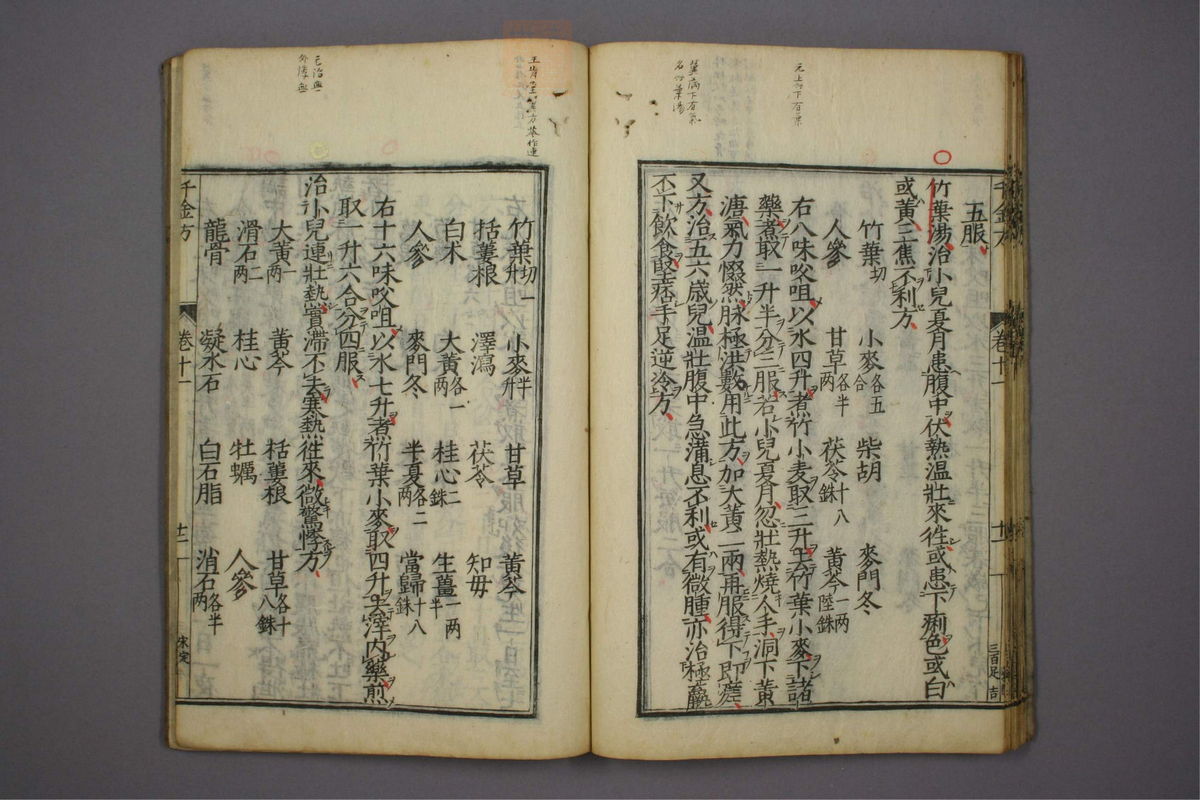 五服
竹葉湯治小兒夏月患腹中伏熱溫壯來往或患下痢色或白
或黃三焦不利方
竹葉切 小麥各五合 柴胡 麥門冬
人參 甘草各半两 茯苓十八銖 黃芩一两陸銖
右八味㕮咀以水四升煮竹小麦取三升去竹葉小麥下諸
藥煮取一升半分三服若小兒夏月忽壯熱燒人手洞下黃
溏氣力惙然脉極洪數用此方加大黃二两再服得下即瘥
又方治五六歲兒溫壯腹中急滿息不利或有微腫亦治極羸
不下飲食堅痞手足逆冷方
千金方
卷十一
十一
三百足吉
元上有下有藥
葉病下有氣
名竹葉湯
竹葉切一升 小麥半升 甘草 黃芩
栝蔞根 澤瀉 茯苓 知母
白术 大黃各一两 桂心二銖 生薑一两半
人參 麥門冬 半夏各二两 當歸十八銖
右十六味㕮咀以水七升煮竹葉小麥取四升去滓內藥煎
取一升六合分四服
治小兒連壯熱實滯不去寒熱往來微驚悸方
大黃一两 黃芩 栝蔞根 甘草各十八銖
滑石二两 桂心 牡蠣 人參
龍骨 凝水石 白石脂 消石各半两
千金方
卷十一
十二
宋定